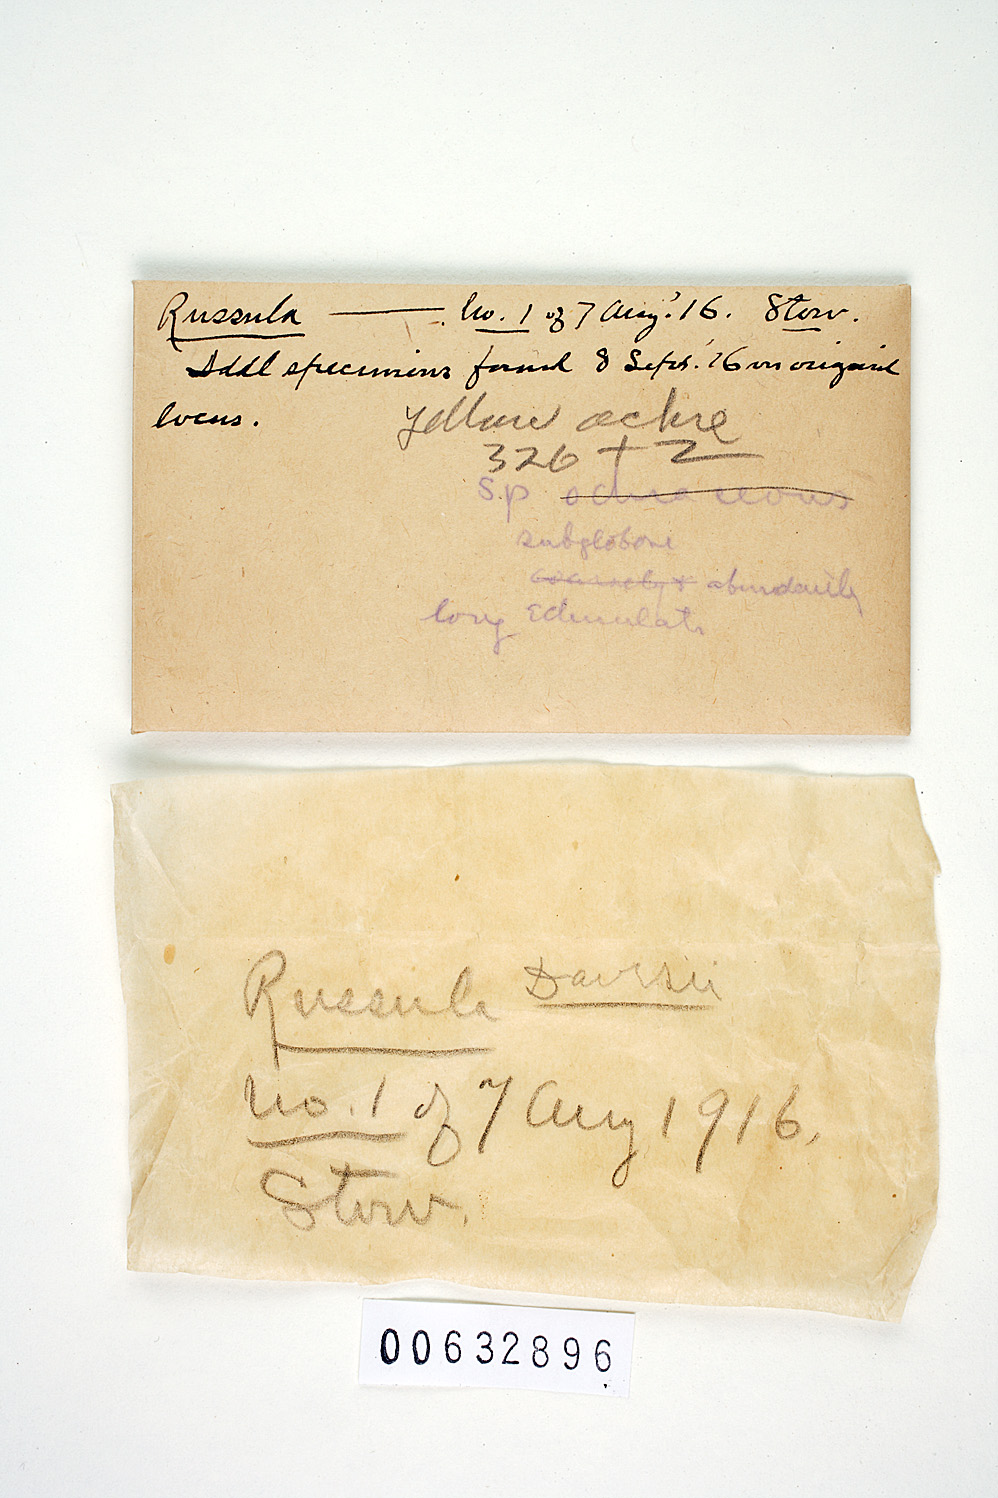 Russula —— . No. 1 of 7 Aug. '16. Stow.
Addl specimens found 8 Sept. '16 on original
locus.
Yellow ochre
326 + 2
Sp ochraceous
subglobose
coarsely + abundantly
long Echinulate
Russula Davisii
No. 1 of 7 Aug 1916.
Stow.
00632896